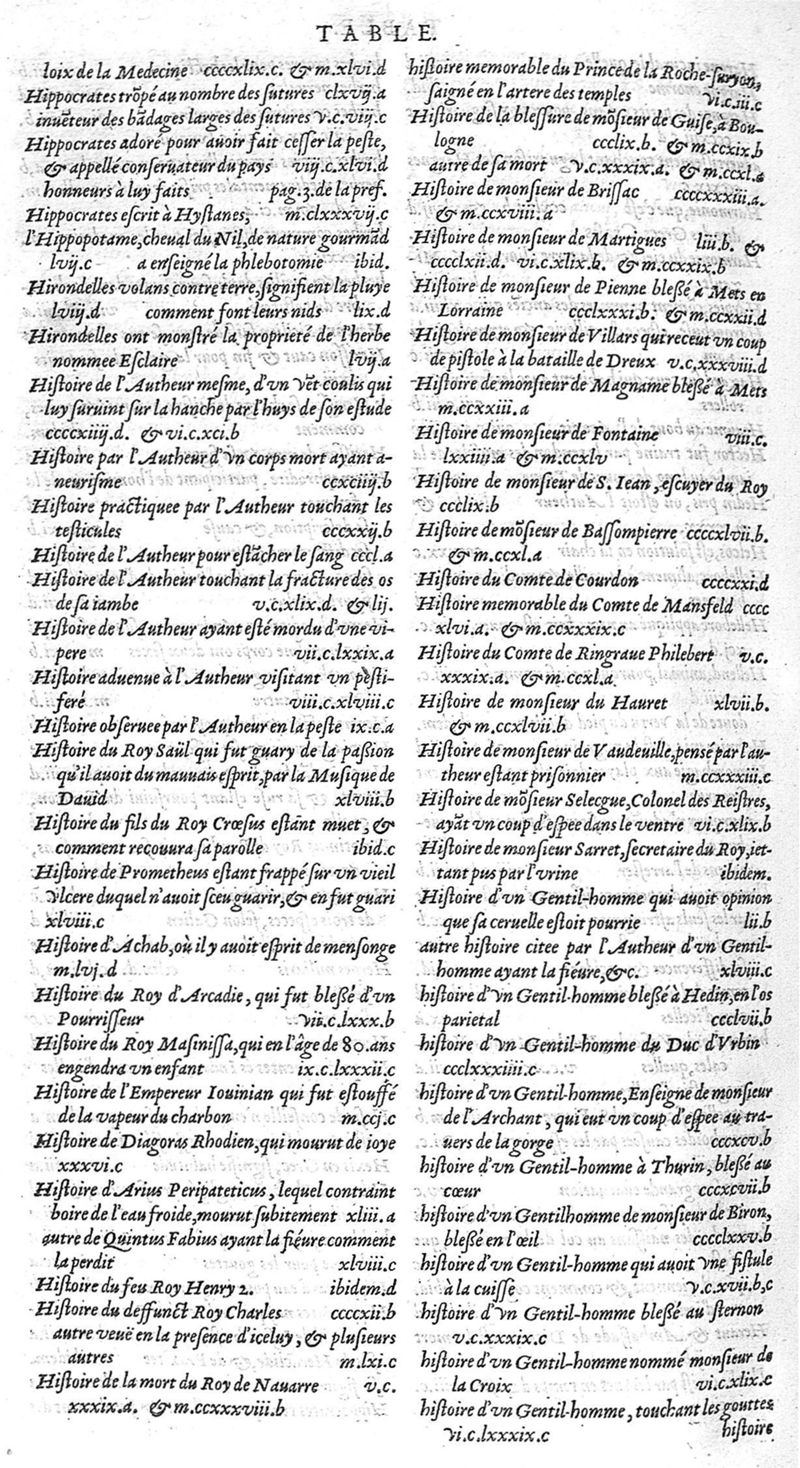 TABLE.
loix de la Medecine ccccxlix.c. & m.xlvi.d
Hippocrates trõpé au nombre des ſutures clxvij.a
inuẽteur des bãdages larges des ſutures v.c.viij.c
Hippocrates adoré pour auoir fait ceſſer la peſte,
& appellé conſeruateur du pays viij.c.xlvi.d
honneurs à luy faits pag.3.de la pref.
Hippocrates eſcrit à Hyſtanes, m.clxxxvij.c
l'Hippopotame, cheual du Nil, de nature gourmãd
lvij.c a enſeigné la phlebotomie ibid.
Hirondelles volans contre terre, ſignifient la pluye
lviij.d comment font leurs nids lix.d
Hirondelles ont monſtré la proprieté de l'herbe
nommee Eſclaire lvij.a
Hiſtoire de l'Autheur meſme, d'vn vẽt coulis qui
luy ſuruint ſur la hanche par l'huys de ſon eſtude
ccccxiiij.d. & vi.c.xci.b
Hiſtoire par l'Autheur d'vn corps mort ayant a-
neuriſme ccxciiij.b
Hiſtoire practiquee par l'Autheur touchant les
teſticules cccxxij.b
Hiſtoire de l'Autheur pour eſtãcher le ſang cccl.a
Hiſtoire de l'Autheur touchant la fracture des os
de ſa iambe v.c.xlix.d. & lij.
Hiſtoire de l'Autheur ayant eſté mordu d'vne vi-
pere vii.c.lxxix.a
Hiſtoire aduenue à l'Autheur viſitant vn peſti-
feré viii.c.xlviii.c
Hiſtoire obſeruee par l'Autheur en la peſte ix.c.a
Hiſtoire du Roy Saül qui fut guary de la paſſion
qu'il auoit du mauuais eſprit, par la Muſique de
Dauid xlviii.b
Hiſtoire du fils du Roy Crœſus eſtant muet, &
comment recouura ſa parolle ibid.c
Hiſtoire de Prometheus eſtant frappé ſur vn vieil
vlcere duquel n'auoit ſceu guarir, & en fut guari
xlviii.c
Hiſtoire d'Achab, où il y auoit eſprit de menſonge
m.lvj.d
Hiſtoire du Roy d'Arcadie, qui fut bleßé d'vn
Pourriſſeur vii.c.lxxx.b
Hiſtoire du Roy Maſiniſſa, qui en l'âge de 80.ans
engendra vn enfant ix.c.lxxxii.c
Hiſtoire de l'Empereur Iouinian qui fut eſtouffé
de la vapeur du charbon m.ccj.c
Hiſtoire de Diagoras Rhodien, qui mourut de ioye
xxxvi.c
Hiſtoire d'Arius Peripateticus, lequel contraint
boire de l'eau froide, mourut ſubitement xliii.a
autre de Quintus Fabius ayant la fieure comment
la perdit xlviii.c
Hiſtoire du feu Roy Henry 2. ibidem.d
Hiſtoire du deffunct Roy Charles ccccxii.b
autre veuë en la preſence d'iceluy, & pluſieurs
autres m.lxi.c
Hiſtoire de la mort du Roy de Nauarre v.c.
xxxix.a. & m.ccxxxviii.b
hiſtoire memorable du Prince de la Roche-ſuryon,
ſaigné en l'artere des temples vi.c.iii.c
Hiſtoire de la bleſſure de mõſieur de Guiſe, à Bou-
logne ccclix.b. & m.ccix.b
autre de ſa mort v.c.xxxix.a. & m.ccxl.a
Hiſtoire de monſieur de Briſſac ccccxxxiii.a.
& m.ccxviii.a
Hiſtoire de monſieur de Martigues liii.b. &
cccclxii.d. vi.c.xlix.b. & m.ccxxix.b
Hiſtoire de monſieur de Pienne bleßé à Mets en
Lorraine ccclxxxi.b. & m.ccxxii.d
Hiſtoire de monſieur de Villars qui receut vn coup
de piſtole à la bataille de Dreux v.c.xxxviii.d
Hiſtoire de monſieur de Magname bleßé à Mets
m.ccxxiii.a
Hiſtoire de monſieur de Fontaine viii.c.
lxxiiii.a & m.ccxlv
Hiſtoire de monſieur de S. Iean, eſcuyer du Roy
ccclix.b
Hiſtoire de mõſieur de Baſſompierre ccccxlvii.b.
& m.ccxl.a
Hiſtoire du Comte de Courdon ccccxxi.d
Hiſtoire memorable du Comte de Mansfeld cccc
xlvi.a. & m.ccxxxix.c
Hiſtoire du Comte de Ringraue Philebert v.c.
xxxix.a. & m.ccxl.a
Hiſtoire de monſieur du Hauret xlvii.b.
& m.ccxlvii.b
Hiſtoire de monſieur de Vaudeuille, penſé par l'au-
theur eſtant priſonnier m.ccxxxiii.c
Hiſtoire de mõſieur Selecgue, Colonel des Reiſtres,
ayãt vn coup d'eſpee dans le ventre vi.c.xlix.b
Hiſtoire de monſieur Sarret, ſecretaire du Roy, iet-
tant pus par l'vrine ibidem.
Hiſtoire d'vn Gentil-homme qui auoit opinion
que ſa ceruelle eſtoit pourrie lii.b
autre hiſtoire citee par l'Autheur d'vn Gentil-
homme ayant la fiéure, &c. xlviii.c
hiſtoire d'vn Gentil-homme bleßé à Hedin, en l'os
parietal ccclvii.b
hiſtoire d'vn Gentil-homme du Duc d'Vrbin
ccclxxxiiii.c
hiſtoire d'vn Gentil-homme, Enſeigne de monſieur
de l'Archant, qui eut vn coup d'eſpee au tra-
uers de la gorge cccxcv.b
hiſtoire d'vn Gentil-homme à Thurin, bleßé au
cœur cccxcvii.b
hiſtoire d'vn Gentilhomme de monſieur de Biron,
bleßé en l'œil cccclxxv.b
hiſtoire d'vn Gentil-homme qui auoit vne fiſtule
à la cuiſſe v.c.xvii.b,c
hiſtoire d'vn Gentil-homme bleßé au ſternon
v.c.xxxix.c
hiſtoire d'vn Gentil-homme nommé monſieur de
la Croix vi.c.xlix.c
hiſtoire d'vn Gentil-homme, touchant les gouttes
vi.c.lxxxix.c hiſtoire